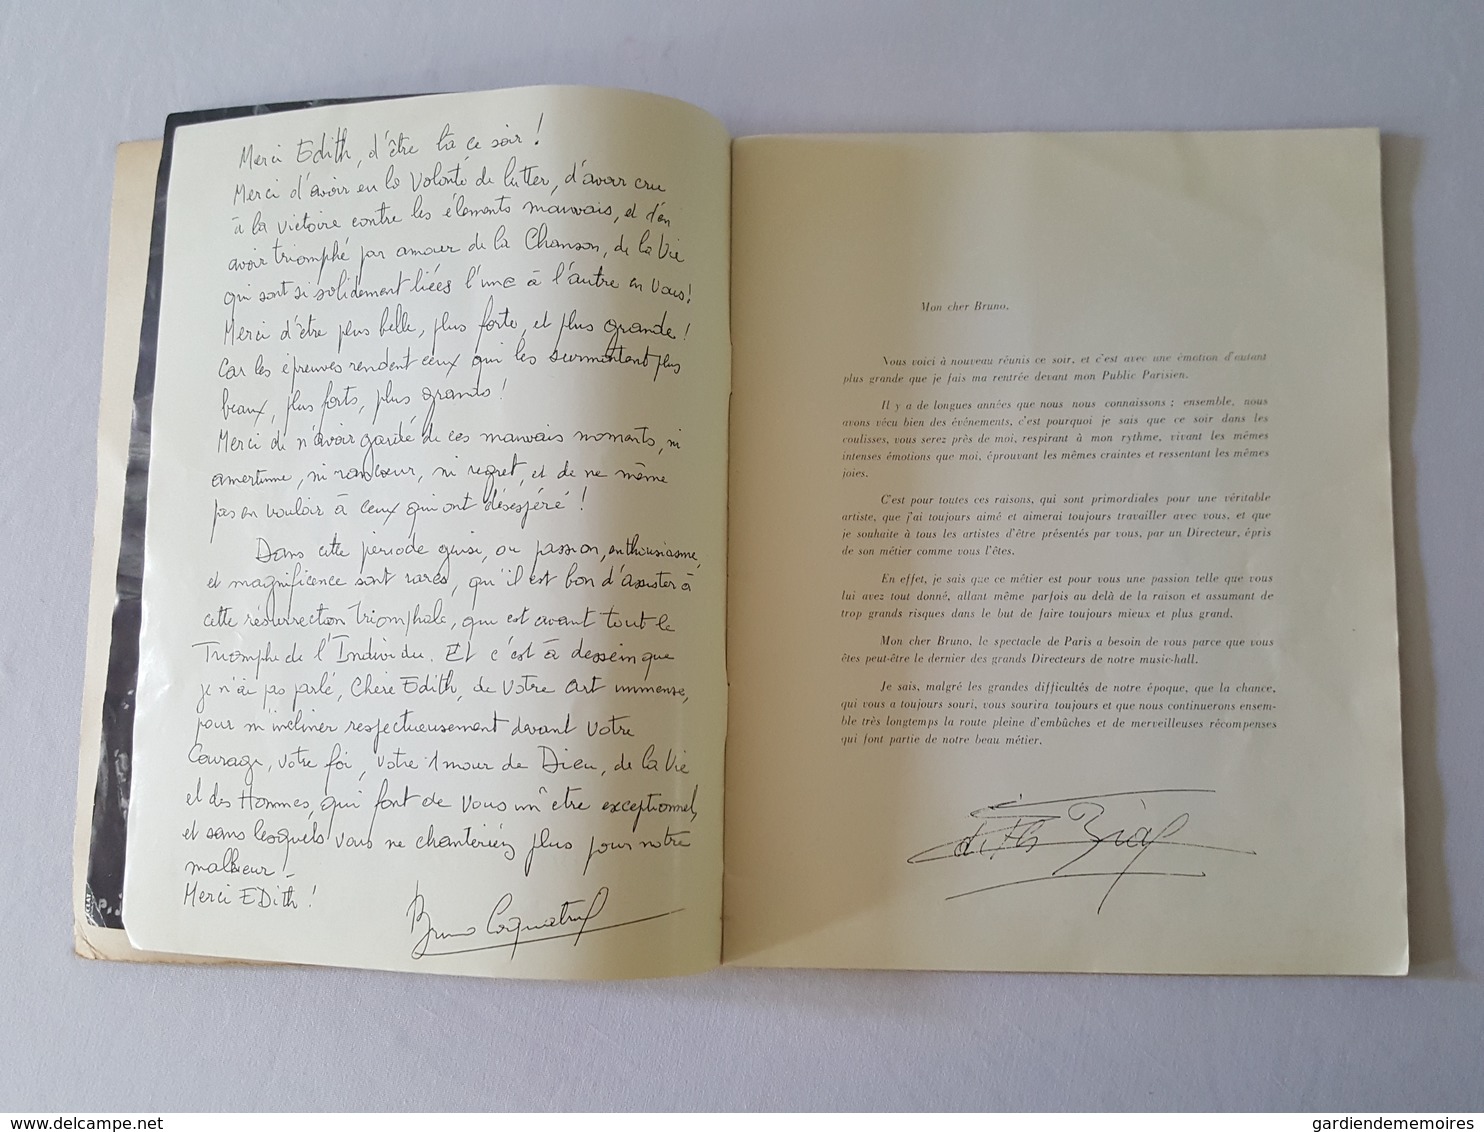 Merci Edith, d'être là ce soir !
Merci d'avoir eu la Volonté de lutter, d'avoir cru
à la victoire contre les éléments mauvais, et d'en
avoir triomphé par amour de la Chanson, de la Vie
qui sont si solidement liées l'une à l'autre en vous !
Merci d'être plus belle, plus forte, et plus grande !
Car les épreuves rendent ceux qui les surmontent plus
beaux, plus forts, plus grands !
Merci de n'avoir gardé de ces mauvais moments, ni
amertume, ni rancœur, ni regret, et de ne même
pas en vouloir à ceux qui ont désespéré !
Dans cette période grise, où passion, enthousiasme,
et magnificence sont rares, qu'il est bon d'assister à
cette résurrection Triomphale, qui est avant tout le
Triomphe de l'Individu. Et c'est à dessein que
je n'ai pas parlé, Chère Edith, de Votre Art immense,
pour m'incliner respectueusement devant Votre
Courage, Votre foi, Votre Amour de Dieu, de la Vie
et des Hommes, qui font de Vous un être exceptionnel,
et sans lesquels vous ne chanteriez plus pour notre
malheur.
Merci EDith !
Bruno Coquatrix
Mon cher Bruno,
Nous voici à nouveau réunis ce soir, et c'est avec une émotion d'autant
plus grande que je fais ma rentrée devant mon Public Parisien.
Il y a de longues années que nous nous connaissons ; ensemble, nous
avons vécu bien des événements, c'est pourquoi je sais que ce soir dans les
coulisses, vous serez près de moi, respirant à mon rythme, vivant les mêmes
intenses émotions que moi, éprouvant les mêmes craintes et ressentant les mêmes
joies.
C'est pour toutes ces raisons, qui sont primordiales pour une véritable
artiste, que j'ai toujours aimé et aimerai toujours travailler avec vous, et que
je souhaite à tous les artistes d'être présentés par vous, par un Directeur, épris
de son métier comme vous l'êtes.
En effet, je sais que ce métier est pour vous une passion telle que vous
lui avez tout donné, allant même parfois au delà de la raison et assumant de
trop grands risques dans le but de faire toujours mieux et plus grand.
Mon cher Bruno, le spectacle de Paris a besoin de vous parce que vous
êtes peut-être le dernier des grands Directeurs de notre music-hall.
Je sais, malgré les grandes difficultés de notre époque, que la chance,
qui vous a toujours souri, vous sourira toujours et que nous continuerons ensem-
ble très longtemps la route pleine d'embûches et de merveilleuses récompenses
qui font partie de notre beau métier.
Edith Piaf
delcampe.net
gardiendememoires